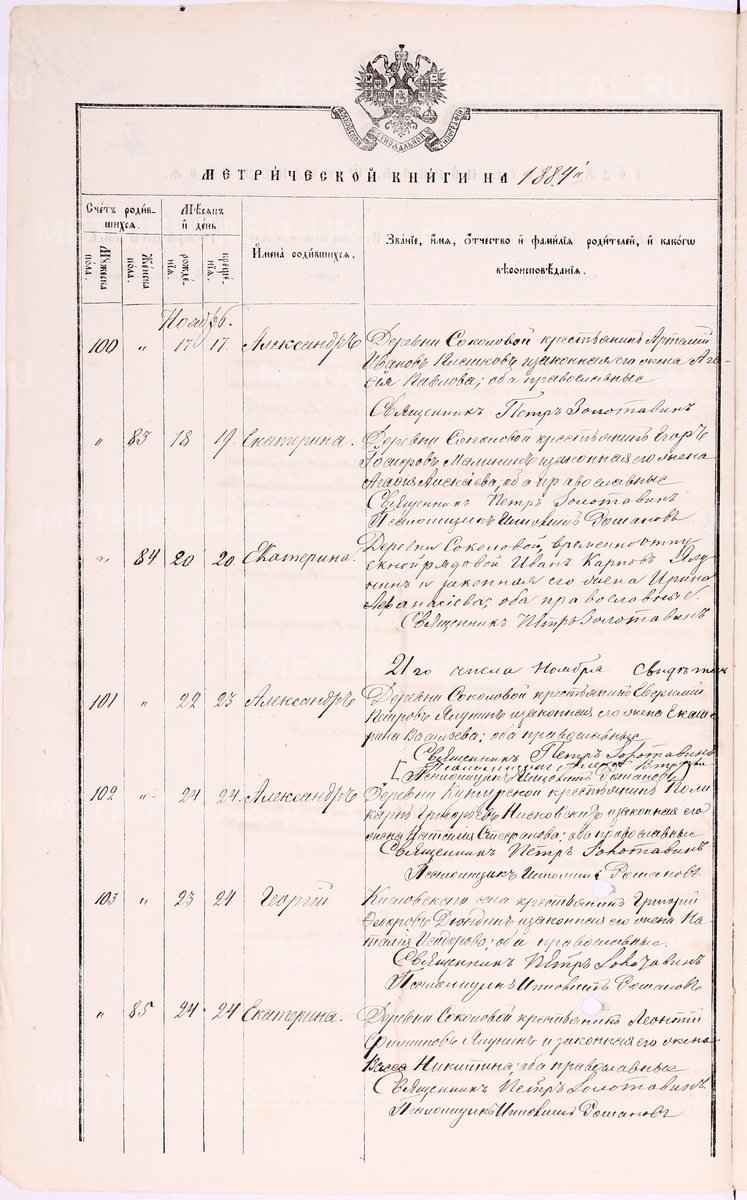 МОСКОВСКОЙ СѴНОДАЛЬНОЙ ТИПОГРАФІИ
МЕТРИ́ЧЕСКОЙ КНИ́ГИ НА 1884 й
Счетъ родив-
шихся.
Мѣсяцъ
и день
Мужеска
пола.
Женска
пола.
рожде-
нія.
креще-
нія.
Имена родившихся.
Званіе, имя, отчество и фамилія родителей, и какогѡ
вѣроисповѣданія.
Ноябрь.
100 " 17 17. Александръ Деревни Соколовой крестьянинъ Артемий
Ивановъ Плешковъ и законная его жена Ага-
фія Павлова; оба православные
Священникъ Петръ Золотавинъ
" 83 18 19. Екатерина. Деревни Соколовой крестьянинъ Егоръ
Малининъ и законная его жена
Агафія Алексѣева; оба православные
Священникъ Петръ Золотавинъ
Псаломщикъ Ипполитъ Романовъ
" 84 20 20. Екатерина. Деревни Соколовой, временноотпу
скной рядовой Иванъ Карповъ Ялу
нинъ и законная его жена Ирина
Афанасіева; оба православные.
Священникъ Петръ Золотавинъ
21 го числа Ноября
101 " 22 23 Александръ Деревни Соколовой крестьянинъ Евфимий
Петровъ Ялунинъ и законная его жена Екате
рина Васильева; оба православные
Священникъ Петръ Золотавинъ
Псаломщикъ
Псаломщикъ Ипполитъ Романовъ
102 " 24 24. Александръ Деревни крестьянинъ Поли
карпъ Григорьевъ и законная его
жена Наталія Стефанова; оба православные
Священникъ Петръ Золотавинъ
Псаломщикъ Ипполитъ Романовъ
103 " 23 24 Георгій Кисловскаго села крестьянинъ Григорій
Ѳедоровъ и законная его жена На
талія; оба православные.
Священникъ Петръ Золотавинъ
Псаломщикъ Ипполитъ Романовъ
" 85 24. 24 Екатерина. Деревни Соколовой крестьянинъ Леонтій
Филиповъ Ялунинъ и законная его жена
Васса Никитина; оба православные
Священникъ Петръ Золотавинъ
Псаломщикъ Ипполитъ Романовъ